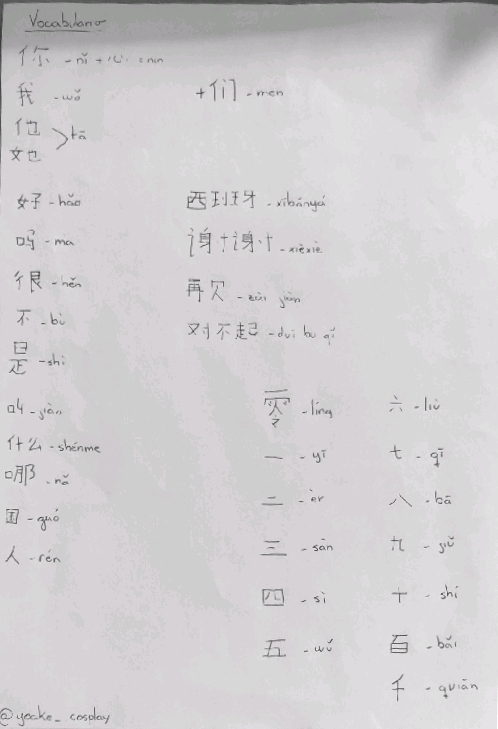 Vocabulario
你 - nǐ + 心
我 - wǒ
+ 们 - men
他
她 > tā
好 - hǎo
吗 - ma
很 - hěn
不 - bù
是 - shì
叫 - jiàn
什么 - shénme
哪 - nǎ
国 - guó
人 - rén
西班牙 - xībānyá
谢谢 - xièxiè
再见 - zài jiàn
对不起 - duì bu qǐ
零 - líng
一 - yī
二 - èr
三 - sān
四 - sì
五 - wǔ
六 - liù
七 - qī
八 - bā
九 - jiǔ
十 - shí
百 - bǎi
千 - quiān
@yocke_cosplay